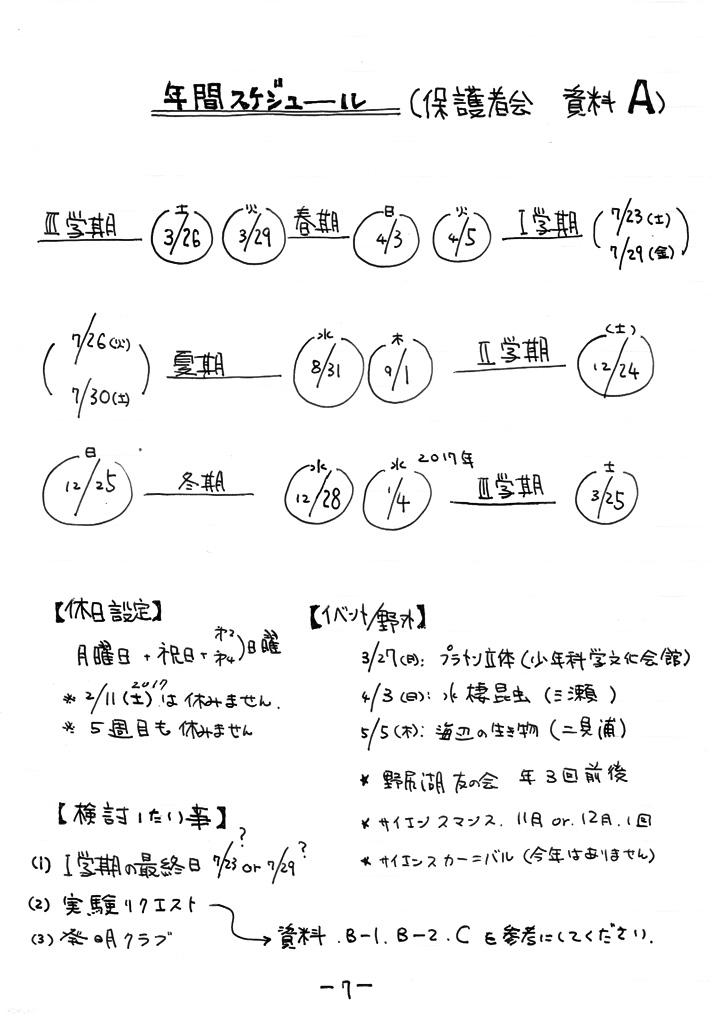 年間スケジュール (保護者会 資料 A)
Ⅲ学期 土 3/26 火 3/29 春期 日 4/3 火 4/5 Ⅰ学期 (7/23(土) 7/29(金))
(7/26(火) 7/30(土)) 夏期 水 8/31 木 9/1 Ⅱ学期 (土) 12/24
日 12/25 冬期 水 12/28 水 1/4 2017年 Ⅲ学期 土 3/25
【休日設定】
月曜日 + 祝日 + 第2 第4)日曜
* 2/11(土) 2017 は休みません.
* 5週目も休みません
【イベント/野外】
3/27(日): プラトン立体(少年科学文化会館)
4/3(日): 水棲昆虫 (三瀬)
5/5(木): 海辺の生き物 (二見浦)
* 野尻湖友の会 年3回前後
* サイエンスマンス. 11月 or. 12月. 1回
* サイエンスカーニバル (今年はありません)
【検討したい事】
(1) Ⅰ学期の最終日 7/23? or 7/29?
(2) 実験リクエスト
(3) 発明クラブ → 資料.B-1.B-2.C を参考にしてください.
-7-